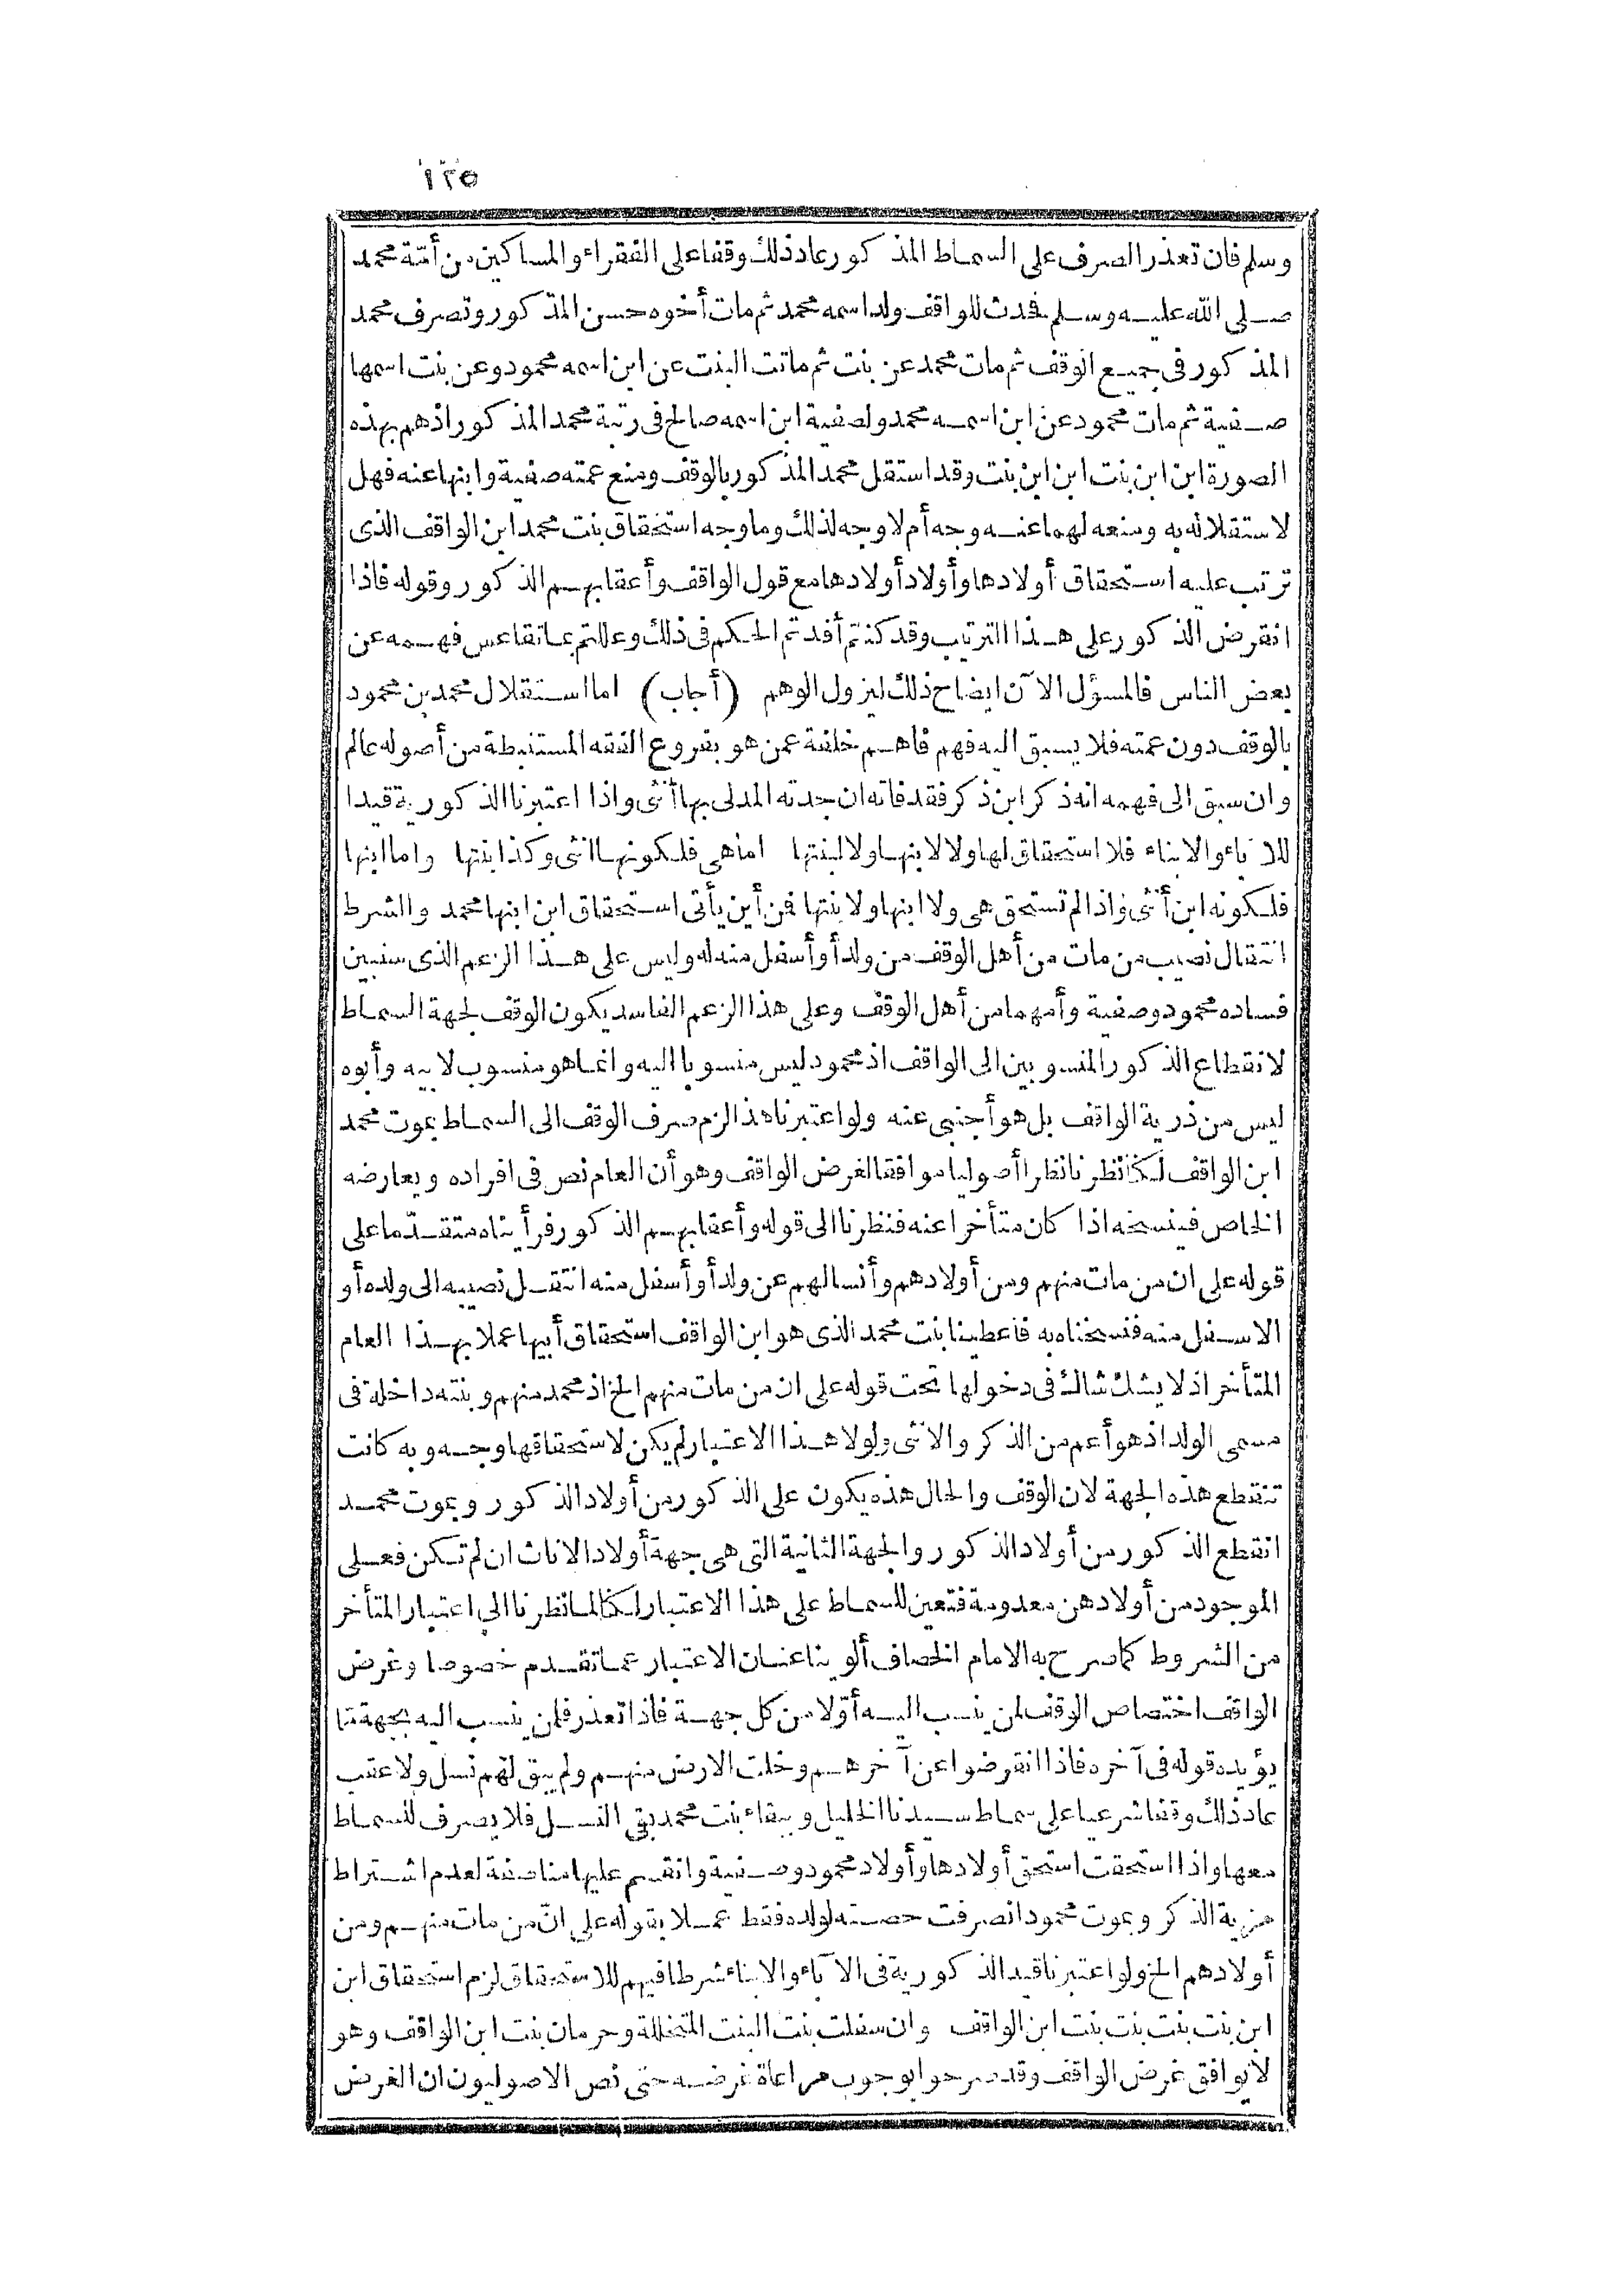 ١٢٥
وسلم فان تعذر الصرف على السماط المذكور عاد ذلك وقفا على الفقراء والمساكين من أمّة محمد
صلى الله عليه وسلم فحدث للواقف ولد اسمه محمد ثم مات أخوه حسن المذكور وتصرف محمد
المذكور فى جميع الوقف ثم مات محمد عن بنت ثم ماتت البنت عن ابن اسمه محمود وعن بنت اسمها
صفية ثم مات محمود عن ابن اسمه محمد ولصفية ابن اسمه صالح فى رتبة محمد المذكور اذ هم بهذه
الصورة ابن ابن بنت ابن ابن بنت وقد استقل محمد المذكور بالوقف ومنع عمته صفية وابنها عنه فهل
لاستقلاله به ومنعه لهما عنه وجه أم لا وجه لذلك وما وجه استحقاق بنت محمد ابن الواقف الذى
ترتب عليه استحقاق أولادها وأولاد أولادها مع قول الواقف وأعقابهم الذكور وقوله فاذا
انقرض الذكور على هذا الترتيب وقد كنتم أفدتم الحكم فى ذلك وعللتم بما تقاعس فهمه عن
بعض الناس فالمسؤل الآن ايضاح ذلك ليزول الوهم (أجاب) اما استقلال محمد بن محمود
بالوقف دون عمته فلا يسبق اليه فهم فاهم خلفة عمن هو بفروع الفقه المستنبطة من أصوله عالم
وان سبق الى فهمه انه ذكر ابن ذكر فقد فاته ان جدته المدلى بها أنثى واذا اعتبرنا الذكورية قيدا
للآباء والابناء فلا استحقاق لها ولا لابنها ولا لبنتها اما هى فلكونها انثى وكذا بنتها واما ابنها
فلكونه ابن أنثى واذا لم تستحق هى ولا ابنها ولا بنتها فمن أين يأتى استحقاق ابن ابنها محمد والشرط
انتقال نصيب من مات من أهل الوقف من ولد أو أسفل منه له وليس على هذا الزعم الذى سنبين
فساده محمود وصفية وأمهما من أهل الوقف وعلى هذا الزعم الفاسد يكون الوقف لجهة السماط
لانقطاع الذكور المنسوبين الى الواقف اذ محمود ليس منسوبا اليه وانما هو منسوب لابيه وأبوه
ليس من ذرية الواقف بل هو أجنبى عنه ولو اعتبرنا هذا لزم صرف الوقف الى السماط بموت محمد
ابن الواقف لكنا نظرنا نظرا أصوليا موافقا لغرض الواقف وهو أن العام نص فى افراده ويعارضه
الخاص فينسخه اذا كان متأخرا عنه فنظرنا الى قوله وأعقابهم الذكور فرأيناه متقدّما على
قوله على ان من مات منهم ومن أولادهم وأنسالهم عن ولد أو أسفل منه انتقل نصيبه الى ولده أو
الاسفل منه فنسخناه به فاعطينا بنت محمد الذى هو ابن الواقف استحقاق أبيها عملا بهذا العام
المتأخر اذ لا يشك شاك فى دخولها تحت قوله على ان من مات منهم الخ اذ محمد منهم وبنته داخلة فى
مسمى الولد اذ هو أعم من الذكر والانثى ولولا هذا الاعتبار لم يكن لاستحقاقها وجه وبه كانت
تنقطع هذه الجهة لان الوقف والحال هذه يكون على الذكور من أولاد الذكور وبموت محمد
انقطع الذكور من أولاد الذكور والجهة الثانية التى هى جهة أولاد الاناث ان لم تكن فعلى
الموجود من أولادهن معدومة فتعين للسماط على هذا الاعتبار لكنا لما نظرنا الى اعتبار المتأخر
من الشروط كما صرح به الامام الخصاف ألوينا عنان الاعتبار عما تقدم خصوصا وغرض
الواقف اختصاص الوقف لمن ينسب اليه أوّلا من كل جهة فاذا تعذر فلمن ينسب اليه بجهة ما
يؤيده قوله فى آخره فاذا انقرضوا عن آخرهم وخلت الارض منهم ولم يبق لهم نسل ولا عقب
عاد ذلك وقفا شرعيا على سماط سيدنا الخليل وببقاء بنت محمد بقى النسل فلا يصرف للسماط
معها واذا استحقت استحق أولادها وأولاد محمود وصفية وانقسم عليها مناصفة لعدم اشتراط
مزية الذكر وبموت محمود انصرفت حصته لولده فقط عملا بقوله على انّ من مات منهم ومن
أولادهم الخ ولو اعتبرنا قيد الذكورية فى الآباء والابناء شرطا فيهم للاستحقاق لزم استحقاق ابن
ابن بنت بنت بنت بنت ابن الواقف وان سفلت بنت البنت المتخللة وحرمان بنت ابن الواقف وهو
لا يوافق غرض الواقف وقد صرحوا بوجوب مراعاة غرضه حتى نص الاصوليون ان الغرض